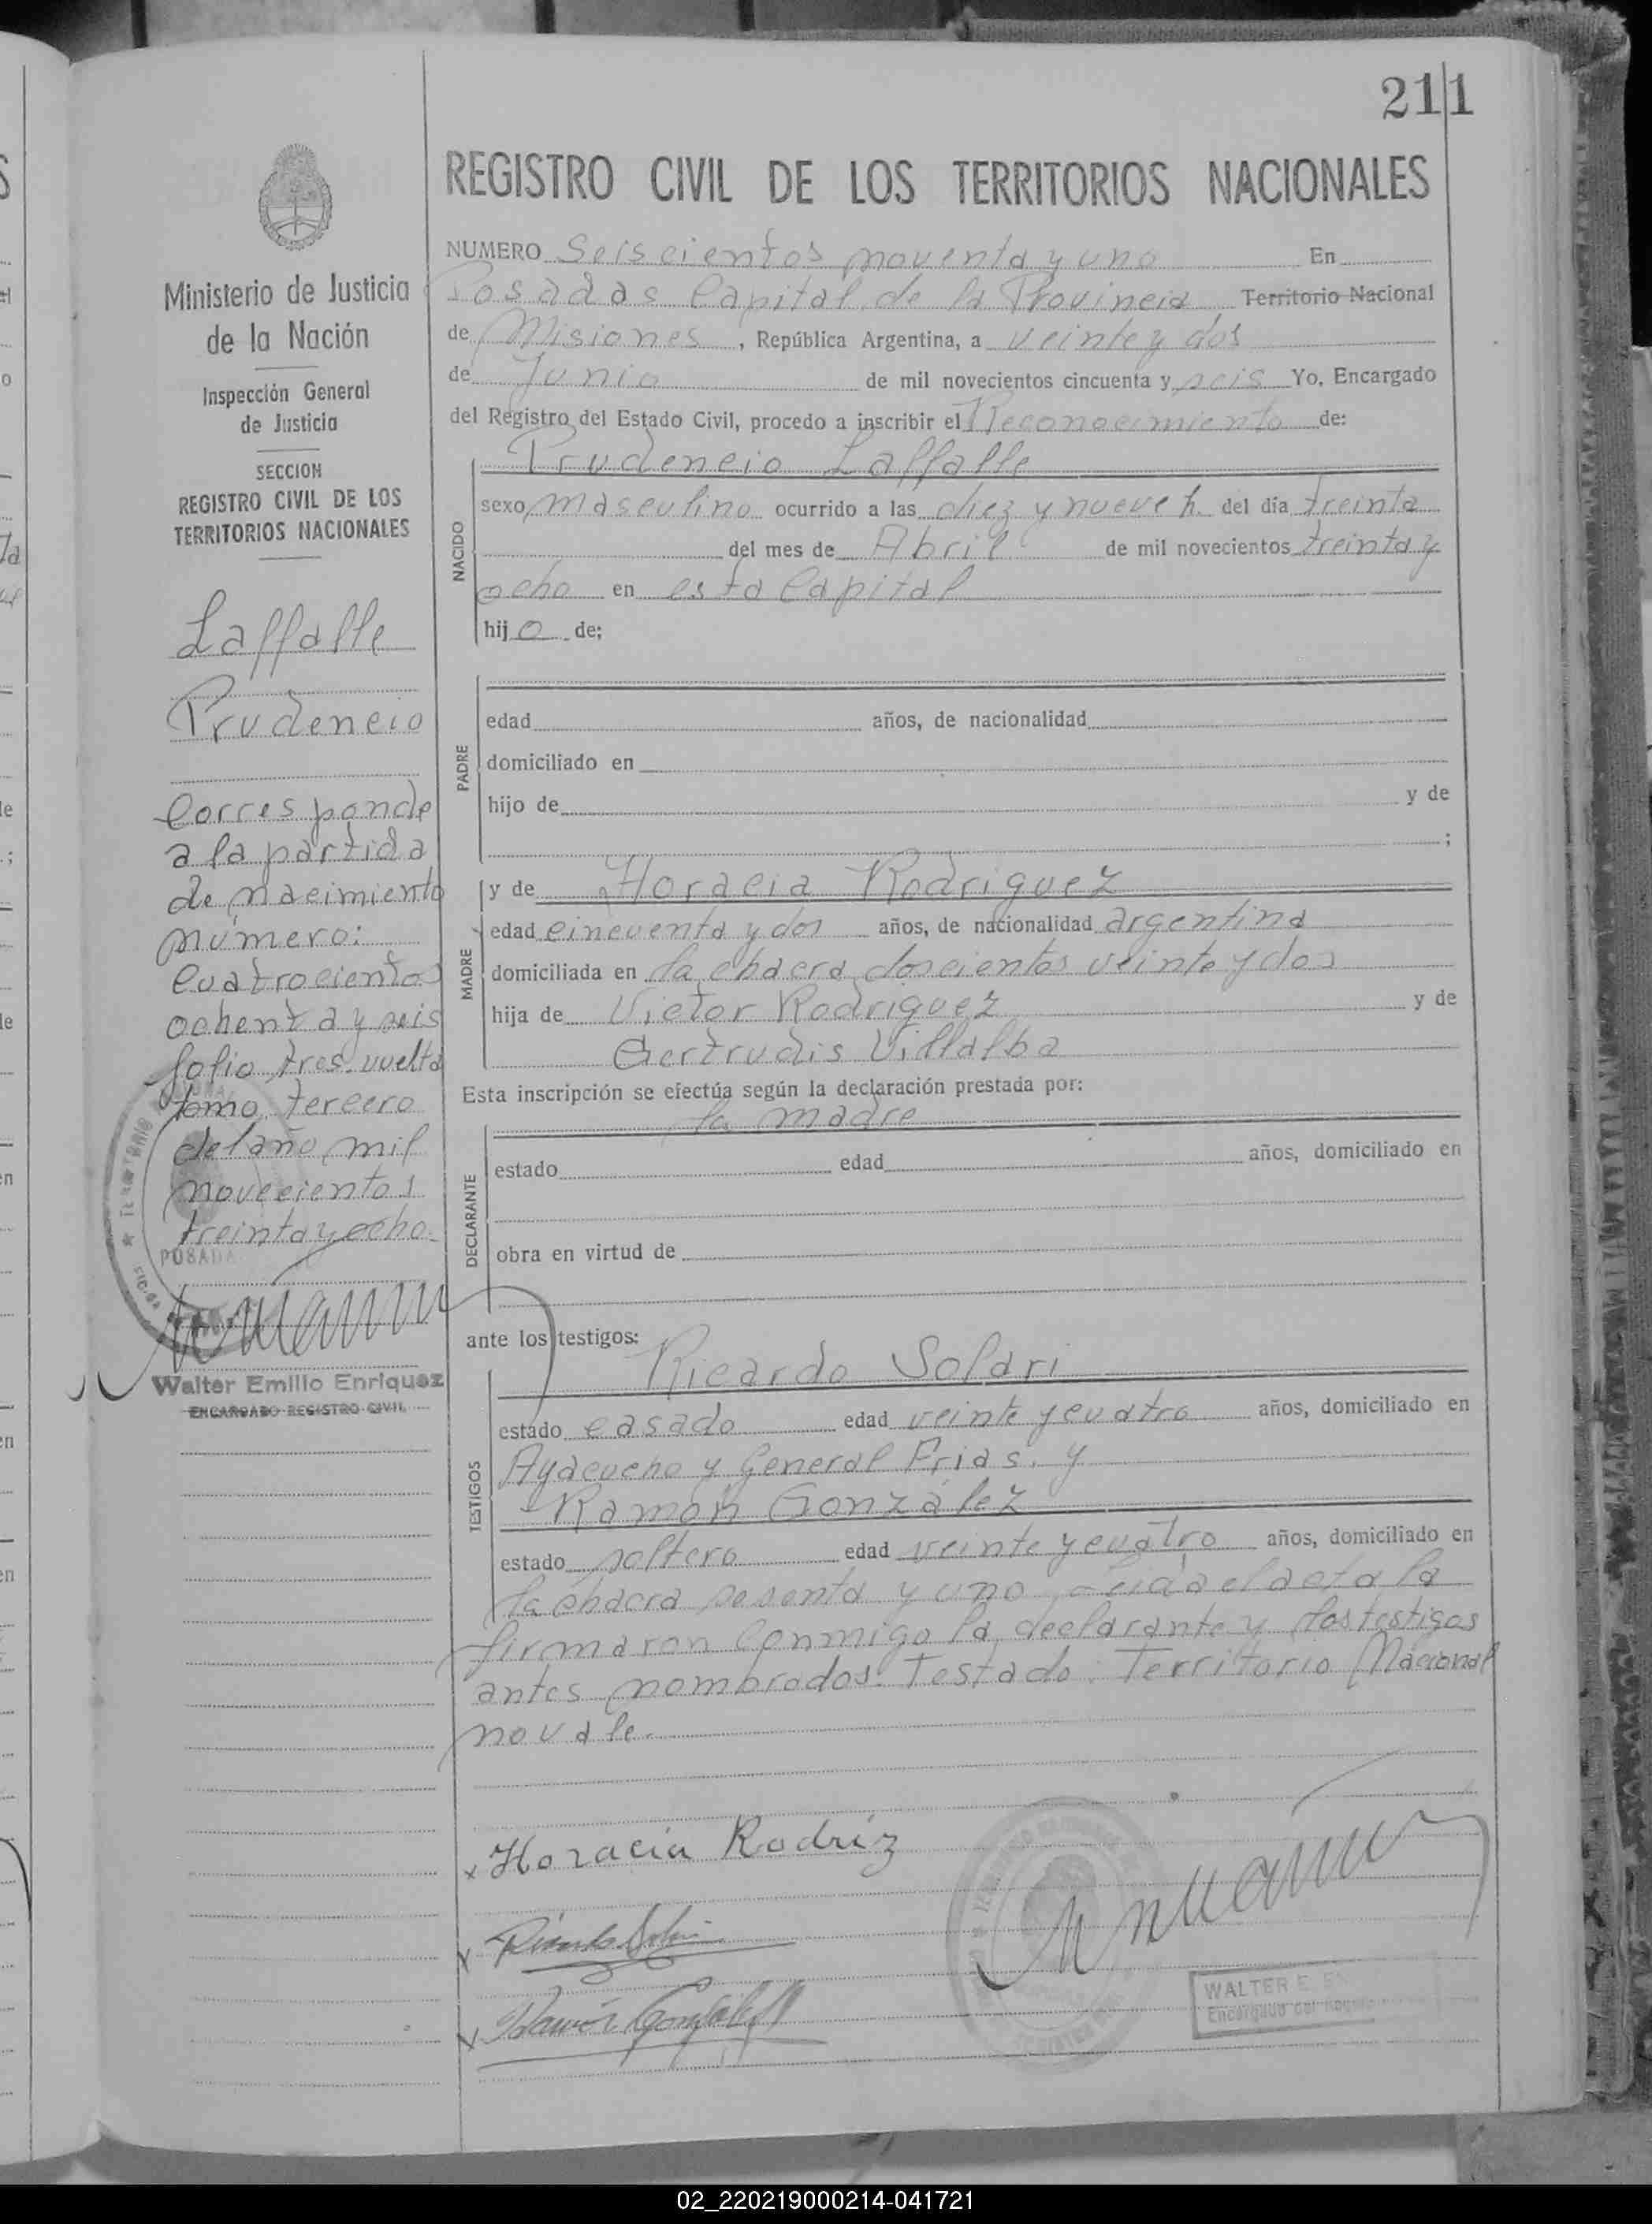 211
REGISTRO CIVIL DE LOS TERRITORIOS NACIONALES
Ministerio de Justicia
de la Nación
Inspección General
de Justicia
SECCION
REGISTRO CIVIL DE LOS
TERRITORIOS NACIONALES
Laffalle
Prudencio
Corresponde
a la partida
de nacimiento
número:
cuatrocientos
ochenta y seis
folio tres vuelta
tomo tercero
del año mil
novecientos
treinta y ocho.
POSADA
Walter Emilio Enriquez
ENCARGADO REGISTRO CIVIL
NUMERO Seiscientos noventa y uno En
Posadas Capital de la Provincia Territorio Nacional
de Misiones, República Argentina, a veinte y dos
de Junio de mil novecientos cincuenta y seis Yo, Encargado
del Registro del Estado Civil, procedo a inscribir el Reconocimiento de:
Prudencio Laffalle
NACIDO
sexo masculino ocurrido a las diez y nueve h. del día treinta
del mes de Abril de mil novecientos treinta y
ocho en esta Capital
hijo de;
PADRE
edad años, de nacionalidad
domiciliado en
hijo de y de
;
MADRE
y de Horacia Rodriguez
edad cincuenta y dos años, de nacionalidad argentina
domiciliada en la chacra doscientos veinte y dos
hija de Victor Rodriguez y de
Gertrudis Villalba
Esta inscripción se efectúa según la declaración prestada por:
la madre
DECLARANTE
estado edad años, domiciliado en
obra en virtud de
ante los testigos:
Ricardo Solari
TESTIGOS
estado casado edad veinte y cuatro años, domiciliado en
Ayacucho y General Frias. y
Ramón González
estado soltero edad veinte y cuatro años, domiciliado en
la chacra sesenta y uno Leida el acta la
firmaron conmigo la declarante y los testigos
antes nombrados. Testado: Territorio Nacional
no vale.
x Horacia Rodríz
Ramón González
WALTER E.
Encargado del
02_220219000214-041721